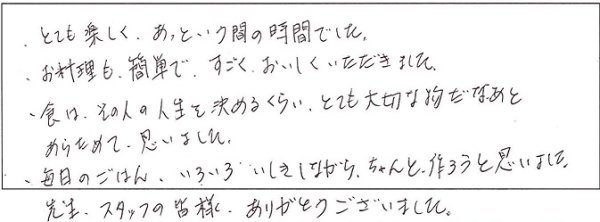 ・とても楽しく、あっという間の時間でした。
・お料理も、簡単で、すごく、おいしくいただきました。
・食は、その人の人生を決めるくらい、とても大切な物だなぁと
あらためて、思いました。
・毎日のごはん、いろいろいしきしながら、ちゃんと、作ろうと思いました。
先生、スタッフの皆様、ありがとうございました。